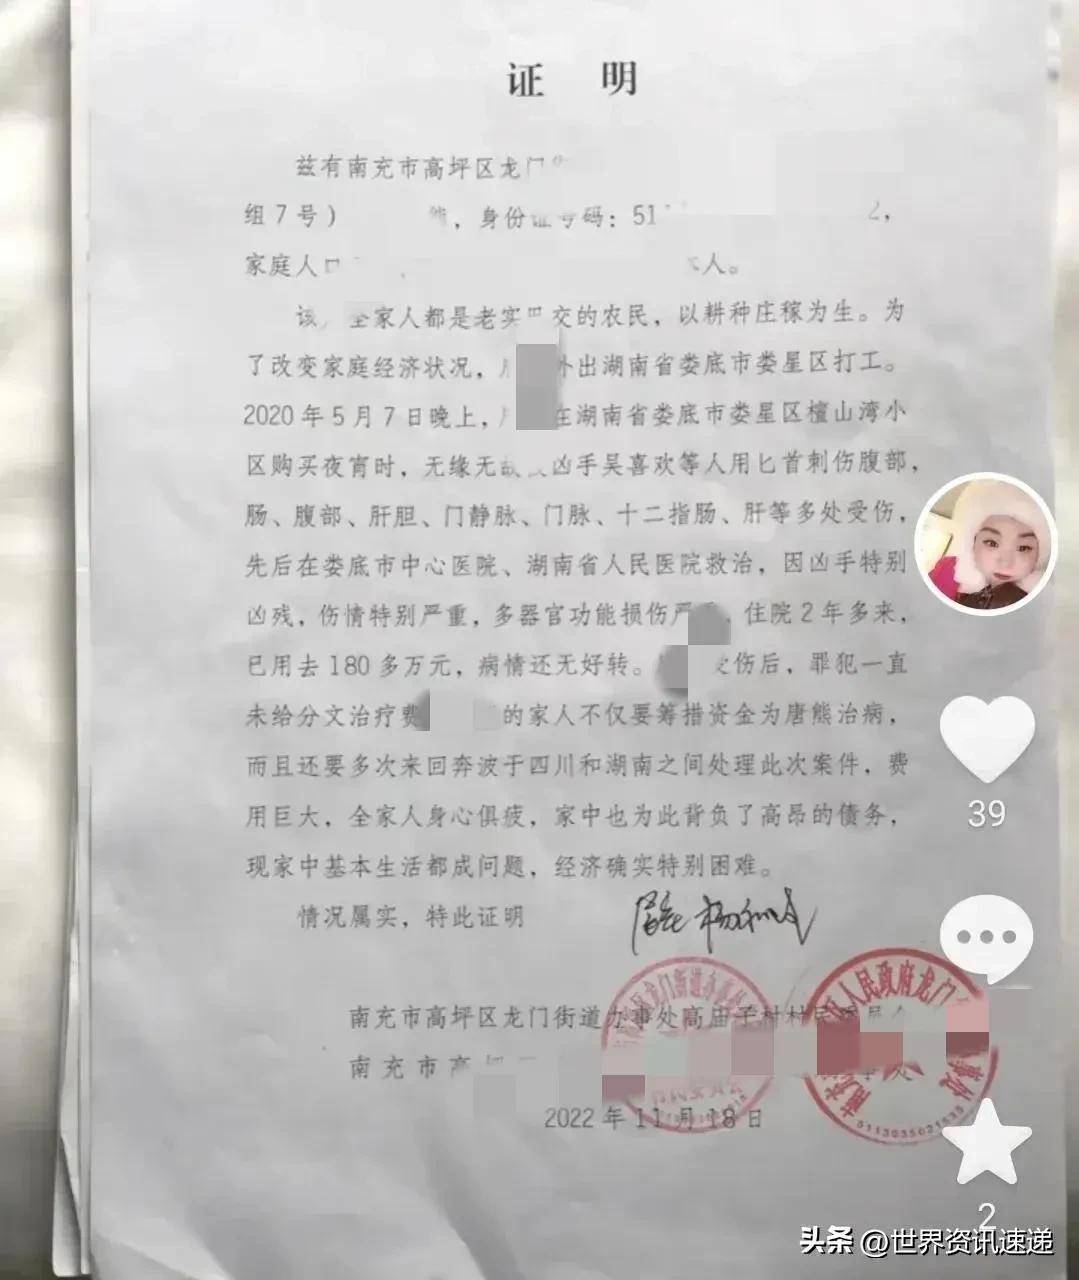 证 明
兹有南充市高坪区龙门
组7号） ，身份证号码：51 2，
家庭人口 人。
该 全家人都是老实 交的农民，以耕种庄稼为生。为
了改变家庭经济状况， 外出湖南省娄底市娄星区打工。
2020年5月7日晚上， 在湖南省娄底市娄星区檀山湾小
区购买夜宵时，无缘无故 凶手吴喜欢等人用匕首刺伤腹部，
肠、腹部、肝胆、门静脉、门脉、十二指肠、肝等多处受伤，
先后在娄底市中心医院、湖南省人民医院救治，因凶手特别
凶残，伤情特别严重，多器官功能损伤严 ，住院2年多来，
已用去180多万元，病情还无好转。 伤后，罪犯一直
未给分文治疗费 的家人不仅要筹措资金为唐熊治病，
而且还要多次来回奔波于四川和湖南之间处理此次案件，费
用巨大，全家人身心俱疲，家中也为此背负了高昂的债务，
现家中基本生活都成问题，经济确实特别困难。
情况属实，特此证明
南充市高坪区龙门街道办事处高庙子村村民委员会
南充市高坪
2022年11月18日
39
2
头条 @世界资讯速递